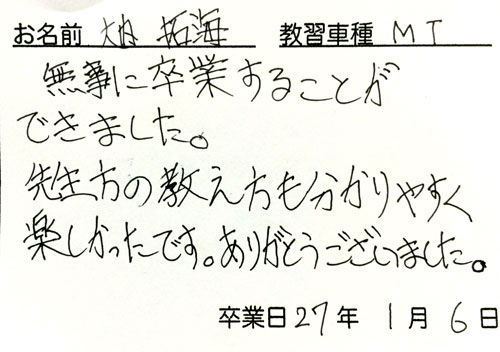 お名前 拓海 教習車種 MT
無事に卒業することが
できました。
先生方の教え方も分かりやすく
楽しかったです。ありがとうございました。
卒業日27年 1月 6日